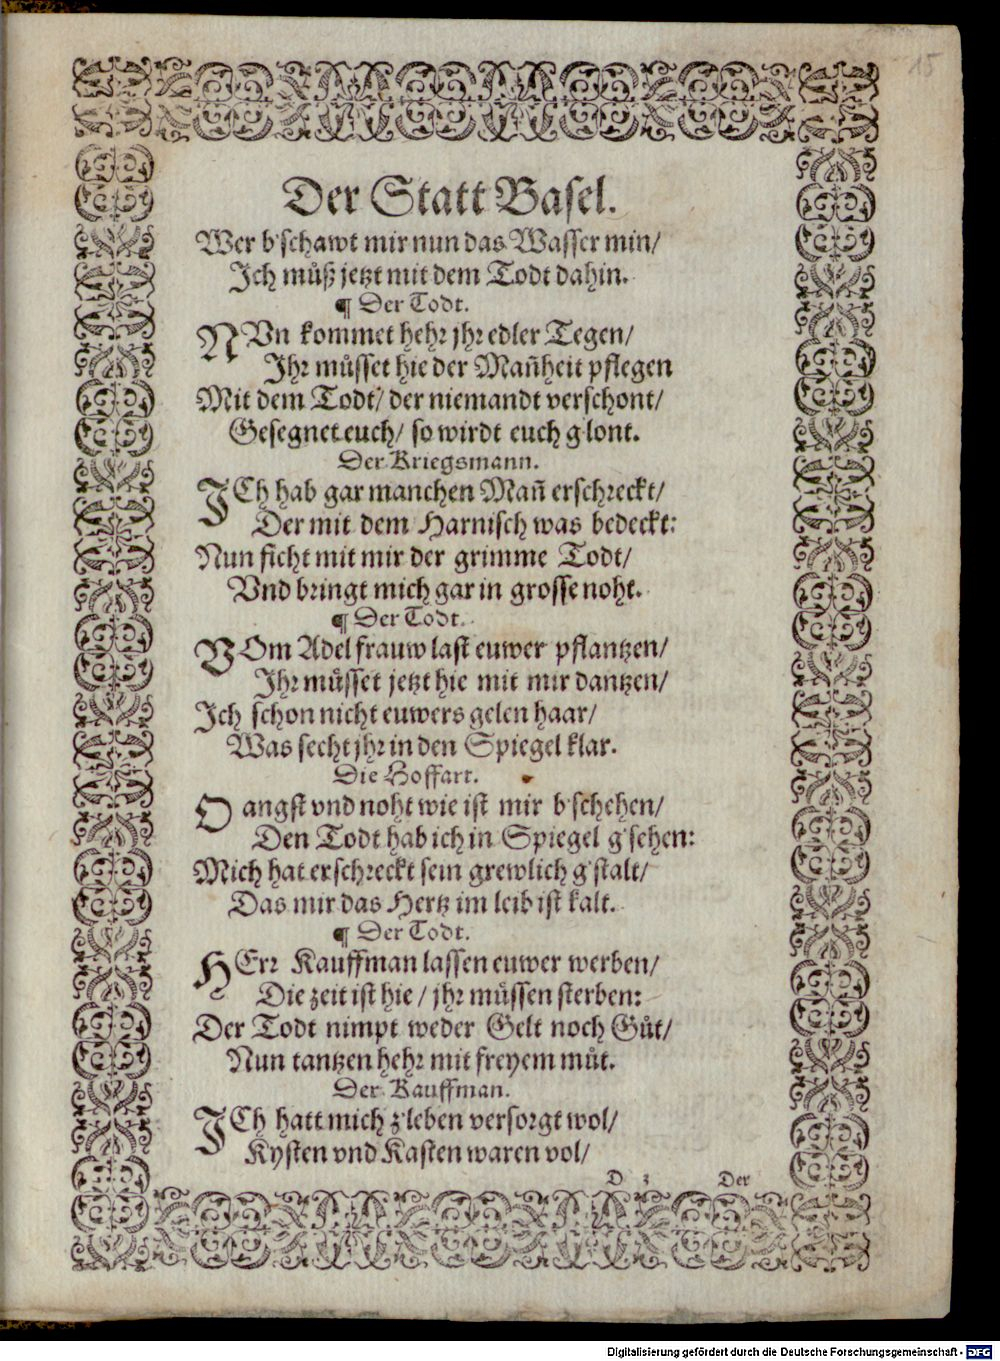 15
Der Statt Basel.
Wer b'schawt mir nun das Wasser min/
Ich můß jetzt mit dem Todt dahin.
¶ Der Todt.
NVn kommet hehr jhr edler Tegen/
Ihr můsset hie der Mañheit pflegen
Mit dem Todt/ der niemandt verschont/
Gesegnet euch/ so wirdt euch g'lont.
Der Kriegsmann.
ICh hab gar manchen Mañ erschreckt/
Der mit dem Harnisch was bedeckt:
Nun ficht mit mir der grimme Todt/
Vnd bringt mich gar in grosse noht.
¶ Der Todt.
VOm Adel frauw last euwer pflantzen/
Ihr můsset jetzt hie mit mir dantzen/
Ich schon nicht euwers gelen haar/
Was secht jhr in den Spiegel klar.
Die Hoffart.
O angst vnd noht wie ist mir b'schehen/
Den Todt hab ich in Spiegel g'sehen:
Mich hat erschreckt sein grewlich g'stalt/
Das mir das Hertz im leib ist kalt.
¶ Der Todt.
HErr Kauffman lassen euwer werben/
Die zeit ist hie/ jhr müssen sterben:
Der Todt nimpt weder Gelt noch Gůt/
Nun tantzen hehr mit freyem můt.
Der Kauffman.
ICh hatt mich z'leben versorgt wol/
Kysten vnd Kasten waren vol/
D 3 Der
Digitalisierung gefördert durch die Deutsche Forschungsgemeinschaft - DFG